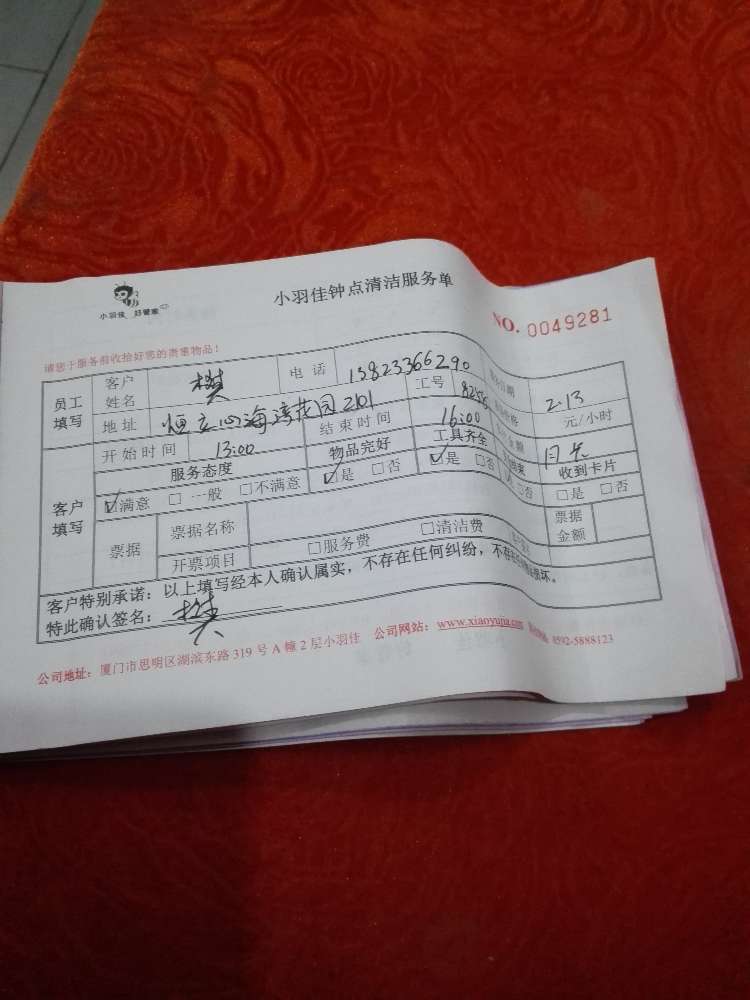 小羽佳 好管家
小羽佳钟点清洁服务单
NO. 0049281
请您于服务前收拾好您的贵重物品!
员工填写 客户姓名 樊 电话 13823366290 2.13
地址 恒立心海湾花园2101 工号 元/小时
开始时间 13:00 结束时间 16:00
客户填写 服务态度 物品完好 工具齐全 收到卡片
☑满意 □一般 □不满意 ☑是 □否 ☑是 □否 □是 □否
票据 票据名称 票据金额
开票项目 □服务费 □清洁费
客户特别承诺:以上填写经本人确认属实,不存在任何纠纷,
特此确认签名: 樊
公司地址:厦门市思明区湖滨东路 319 号 A 幢 2 层小羽佳 公司网站:www.xiaoyujia.com 0592-5888123